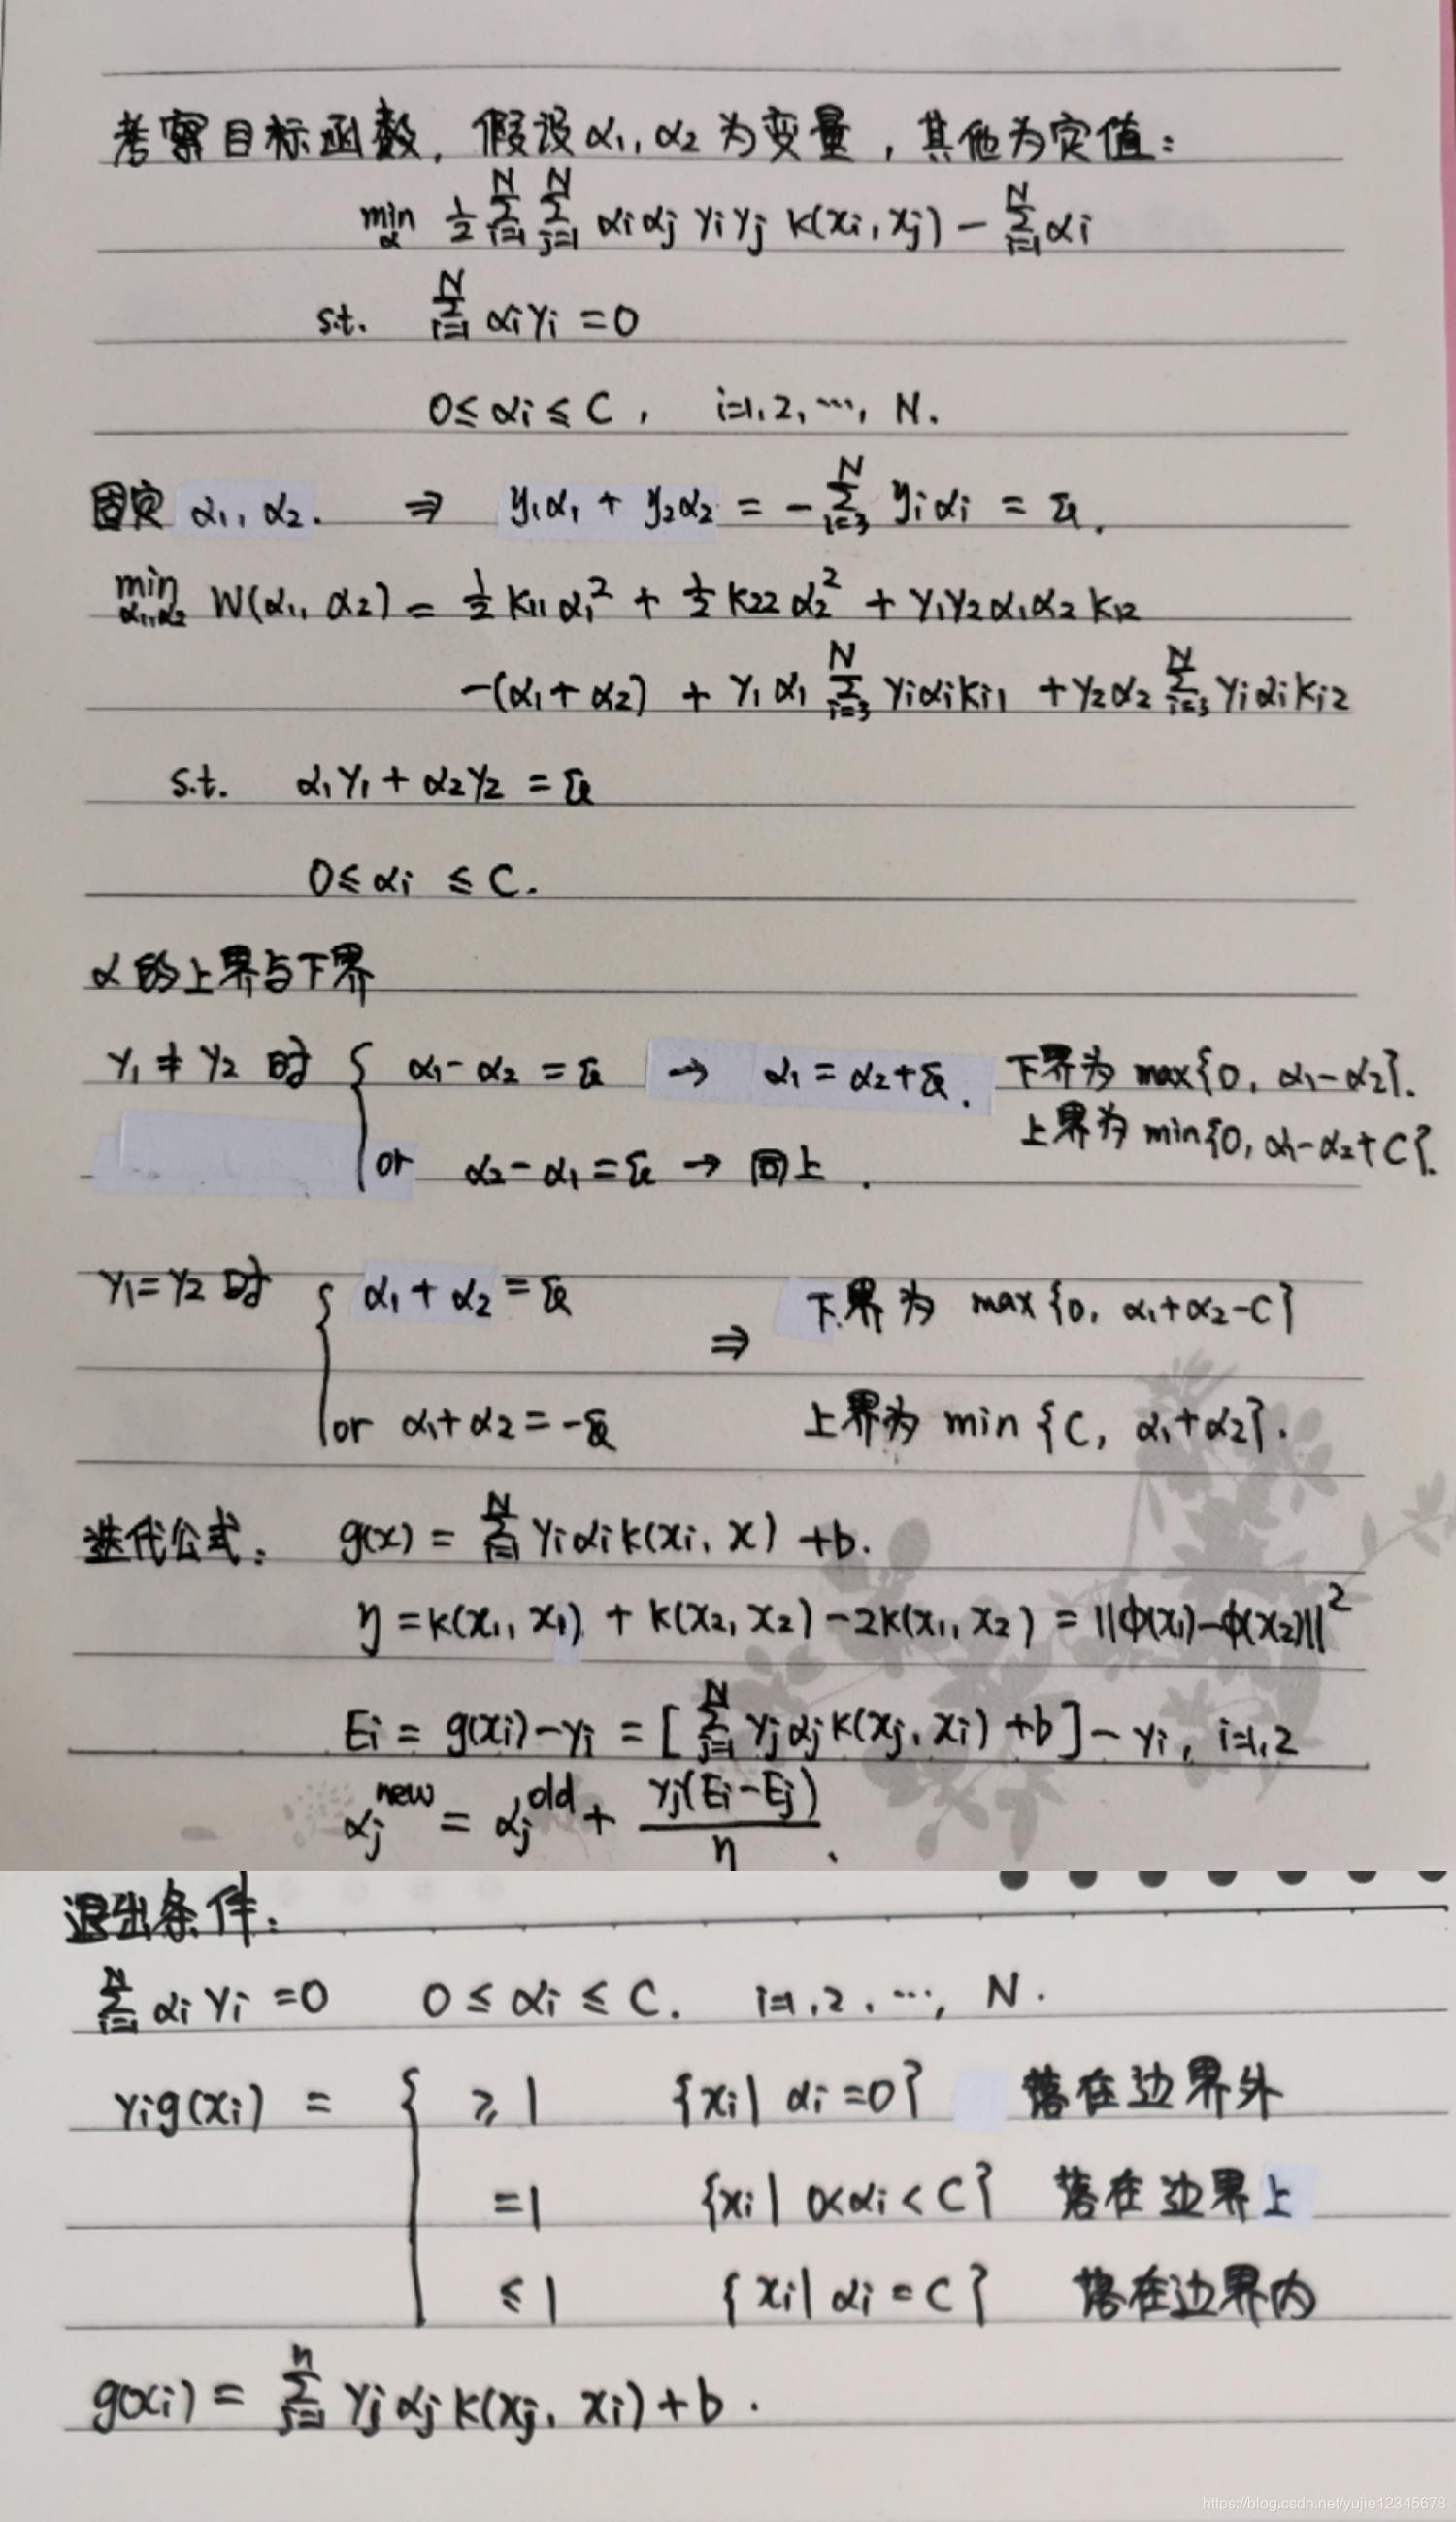 考察目标函数, 假设α₁, α₂为变量, 其他为定值:
min_α ½ Σ_{i=1}^N Σ_{j=1}^N αᵢαⱼ yᵢyⱼ k(xᵢ, xⱼ) − Σ_{i=1}^N αᵢ
s.t. Σ_{i=1}^N αᵢyᵢ = 0
0 ≤ αᵢ ≤ C, i=1,2,…, N.
固定 α₁, α₂. ⇒ y₁α₁ + y₂α₂ = − Σ_{i=3}^N yᵢαᵢ =
min_{α₁,α₂} W(α₁, α₂) = ½ K₁₁α₁² + ½ K₂₂α₂² + y₁y₂α₁α₂K₁₂
−(α₁+α₂) + y₁α₁ Σ_{i=3}^N yᵢαᵢKᵢ₁ + y₂α₂ Σ_{i=3}^N yᵢαᵢKᵢ₂
s.t. α₁y₁ + α₂y₂ =
0 ≤ αᵢ ≤ C.
α的上界与下界
y₁ ≠ y₂ 时 { α₁ − α₂ = → α₁ = α₂ + . 下界为 max{0, α₁−α₂}.
上界为 min{0, α₁−α₂+C}.
or α₂ − α₁ = → 同上.
y₁ = y₂ 时 { α₁ + α₂ = ⇒ 下界为 max{0, α₁+α₂−C}
or α₁+α₂ = − 上界为 min{C, α₁+α₂}.
迭代公式: g(x) = Σ_{i=1}^N yᵢαᵢk(xᵢ, x) + b.
η = k(x₁, x₁) + k(x₂, x₂) − 2k(x₁, x₂) = ||ϕ(x₁)−ϕ(x₂)||²
Eᵢ = g(xᵢ)−yᵢ = [Σ_{j=1}^N yⱼαⱼk(xⱼ, xᵢ) + b] − yᵢ, i=1,2
αⱼ^new = αⱼ^old + yⱼ(Eᵢ−Eⱼ)/η.
退出条件:
Σ_{i=1}^N αᵢyᵢ = 0 0 ≤ αᵢ ≤ C. i=1,2,…, N.
yᵢg(xᵢ) = { ≥ 1 {xᵢ| αᵢ=0} 落在边界外
=1 {xᵢ| 0<αᵢ<C} 落在边界上
≤ 1 {xᵢ| αᵢ=C} 落在边界内
g(xᵢ) = Σ_{j=1}^n yⱼαⱼk(xⱼ, xᵢ) + b.
https://blog.csdn.net/yujie12345678